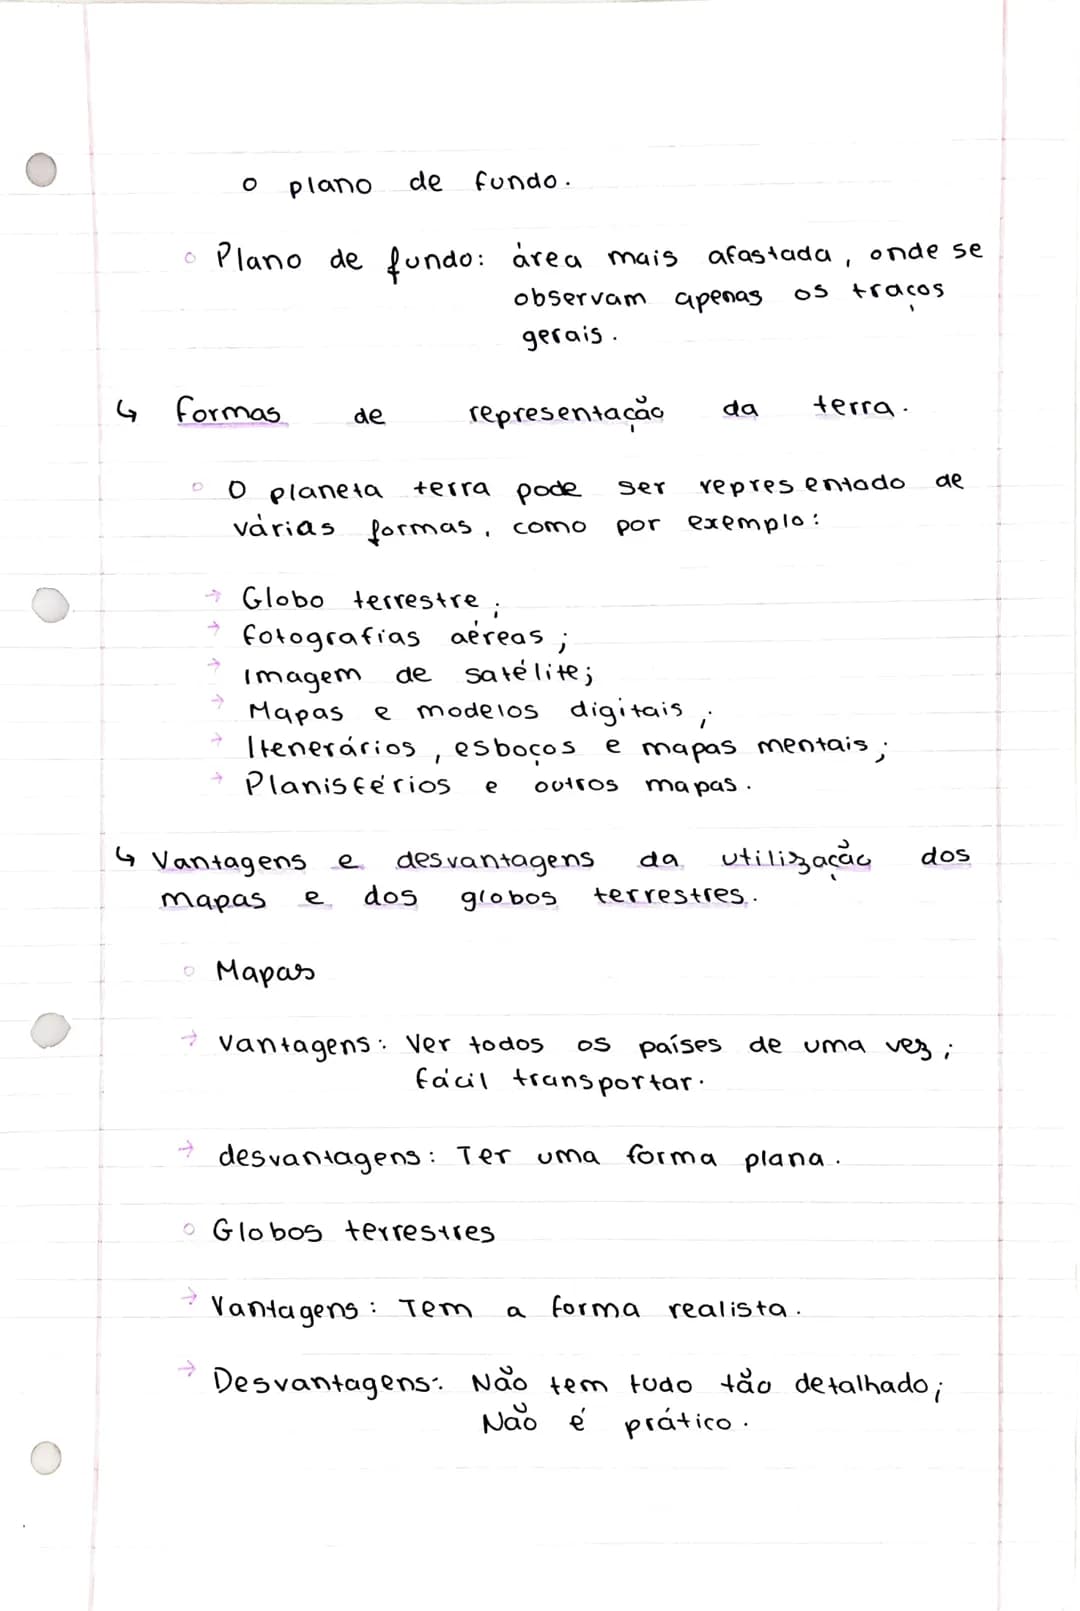 o plano de fundo.
○ Plano de fundo: área mais afastada, onde se
observam apenas os traços
gerais.
↳ Formas de representação da terra.
○ O planeta terra pode ser representado de
várias formas, como por exemplo:
→ Globo terrestre;
→ fotografias aéreas;
→ Imagem de satélite;
→ Mapas e modelos digitais;
→ Itenerários, esboços e mapas mentais;
→ Planisférios e outros mapas.
↳ Vantagens e desvantagens da utilização dos
mapas e dos globos terrestres.
○ Mapas
→ Vantagens: Ver todos os países de uma vez;
fácil transportar.
→ desvantagens: Ter uma forma plana.
○ Globos terrestres
→ Vantagens: Tem a forma realista.
→ Desvantagens: Não tem tudo tão detalhado;
Não é prático.